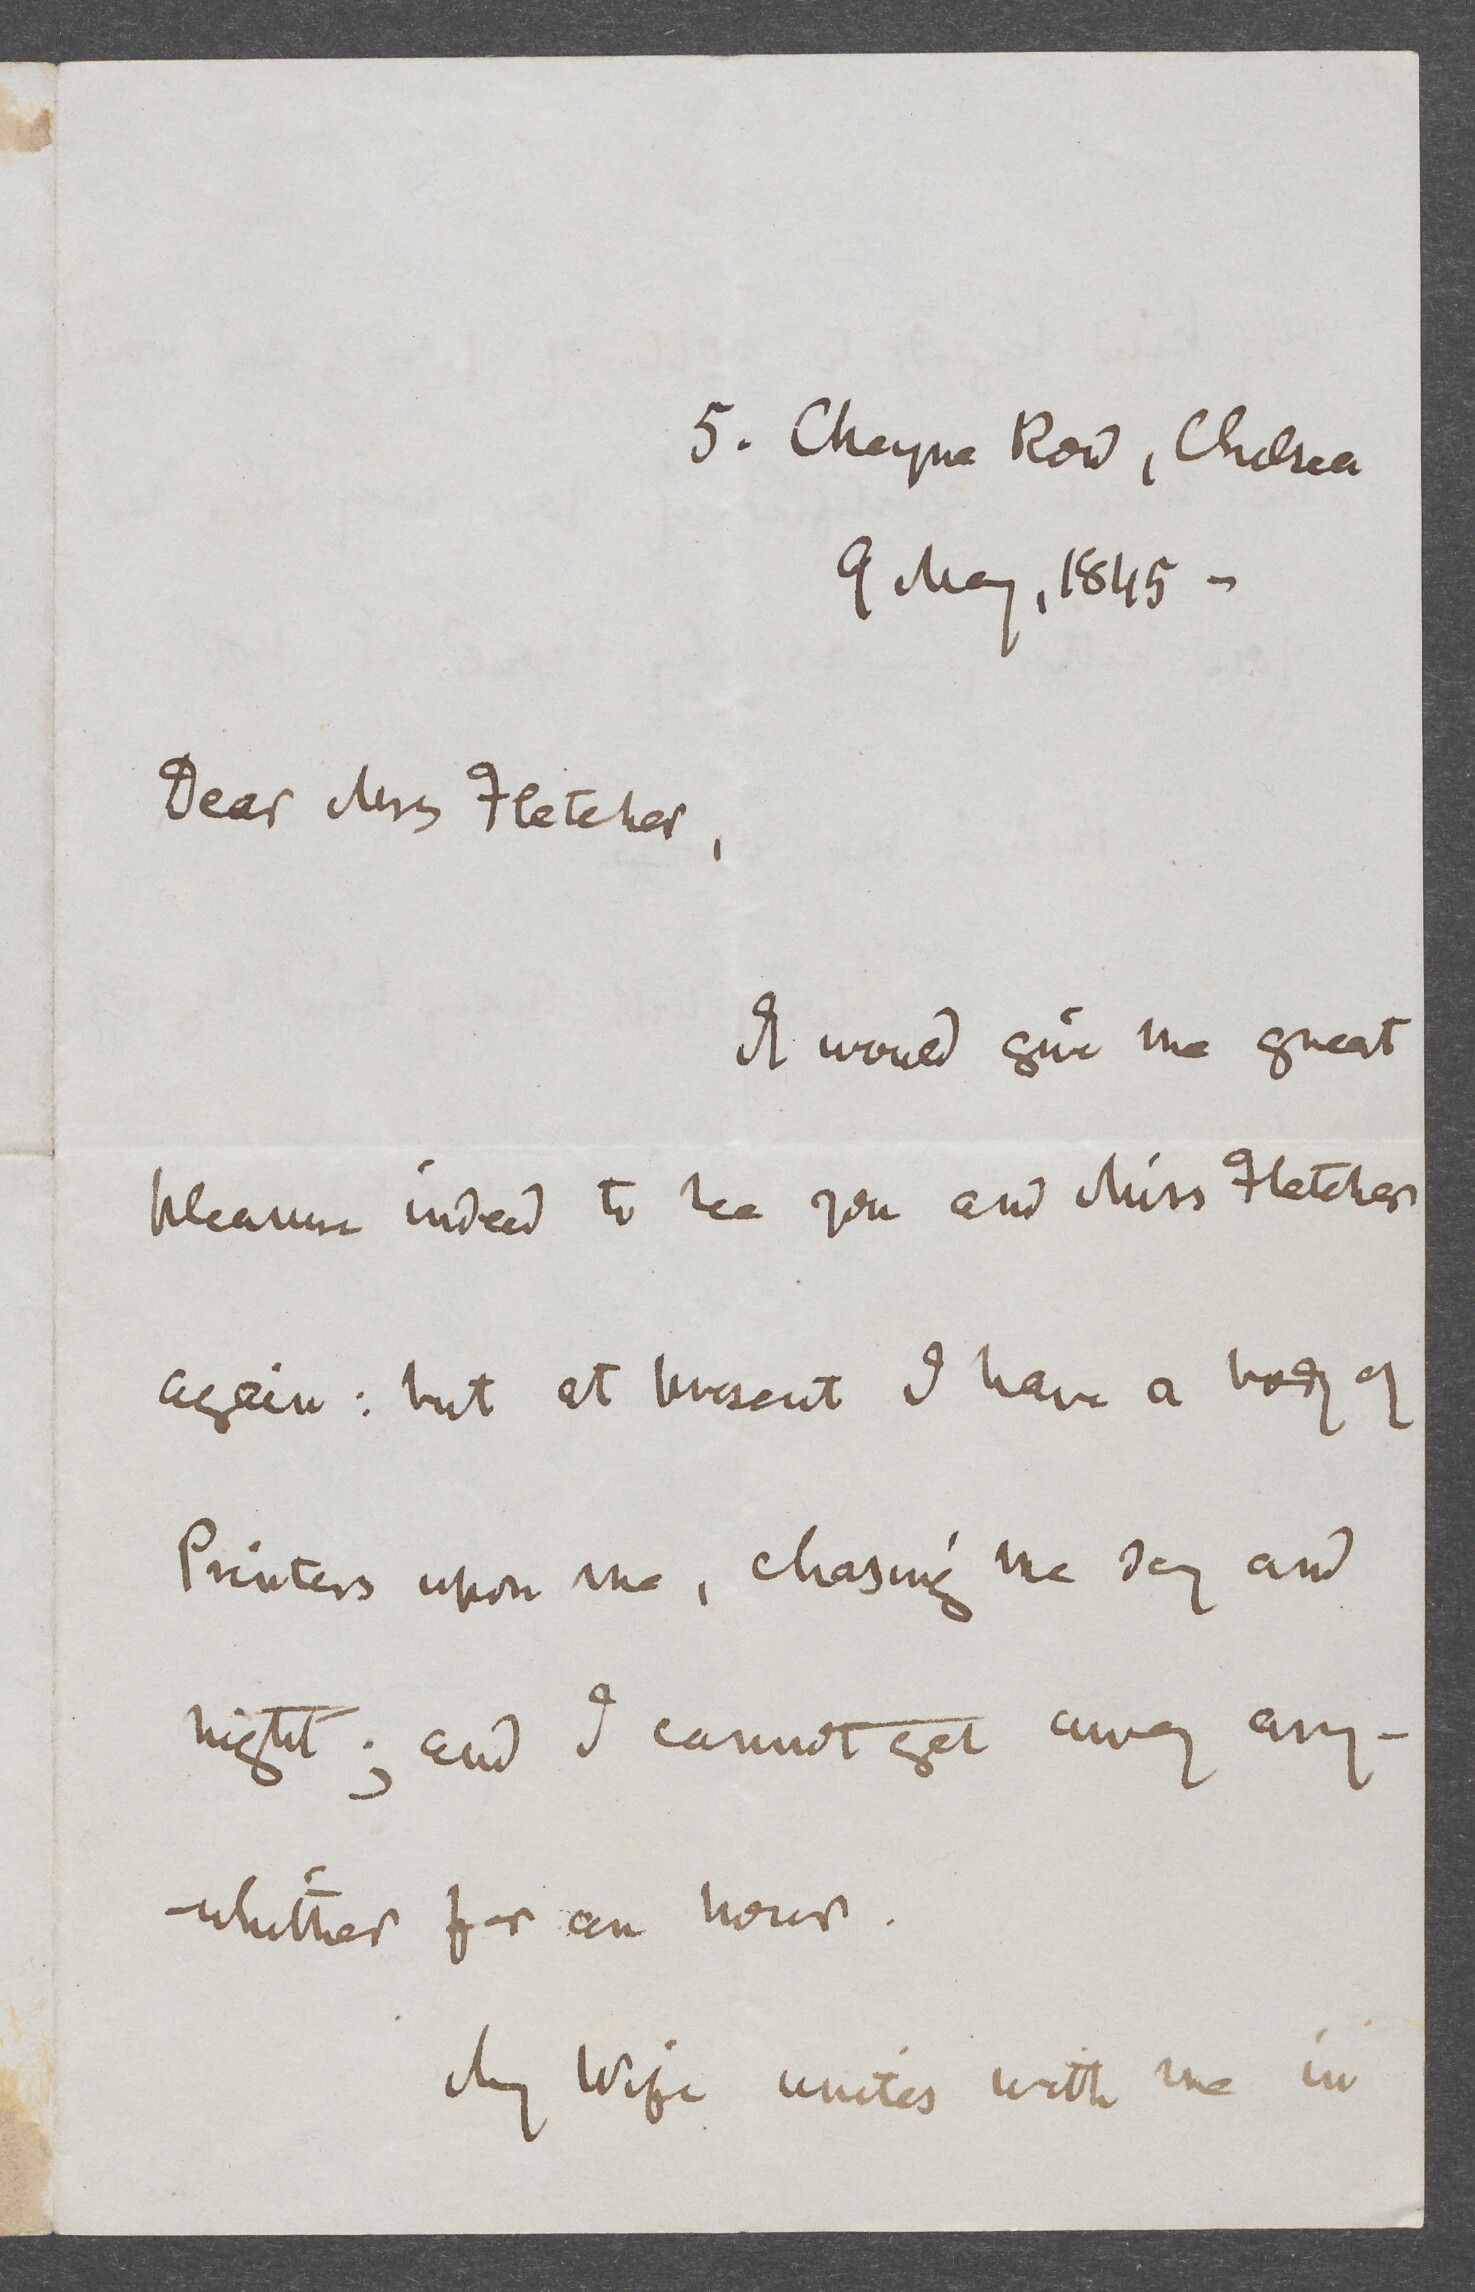 5. Cheyne Row, Chelsea
9 May, 1845 –
Dear Mrs Fletcher,
It would give me great
pleasure indeed to see you and Miss Fletcher
again: but at present I have a body of
Printers upon me, chasing me day and
night; and I cannot get away any-
-whither for an hour.
My Wife unites with me in